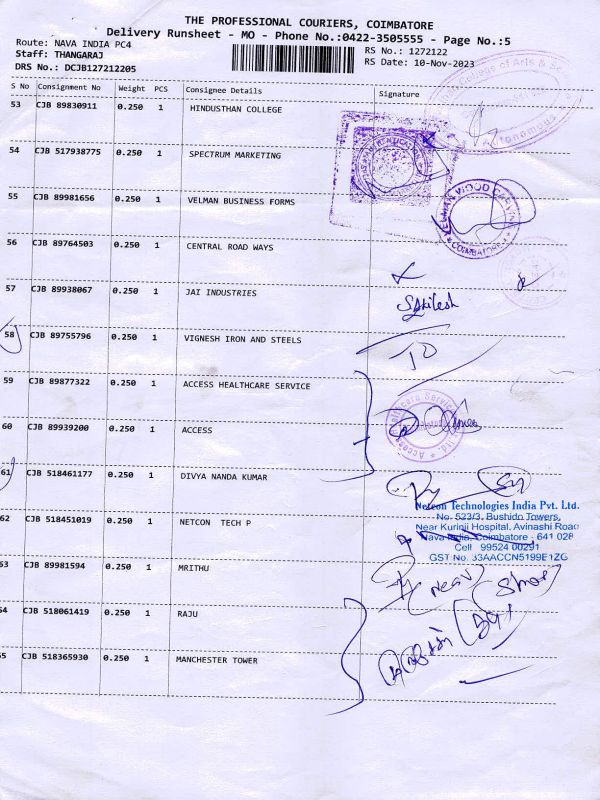 THE PROFESSIONAL COURIERS, COIMBATORE
Delivery Runsheet - MO - Phone No.:0422-3505555 - Page No.:5
Route: NAVA INDIA PC4
RS No.: 1272122
Staff: THANGARAJ
RS Date: 10-Nov-2023
DRS No.: DCJB127212205
S No Consignment No Weight PCS Consignee Details Signature
53 CJB 89830911 0.250 1 HINDUSTHAN COLLEGE
College of Arts & Sc
Autonomous
54 CJB 517938775 0.250 1 SPECTRUM MARKETING
55 CJB 89981656 0.250 1 VELMAN BUSINESS FORMS
VELMAN WOOD
COIMBATORE
56 CJB 89764503 0.250 1 CENTRAL ROAD WAYS
57 CJB 89938067 0.250 1 JAI INDUSTRIES
58 CJB 89755796 0.250 1 VIGNESH IRON AND STEELS
59 CJB 89877322 0.250 1 ACCESS HEALTHCARE SERVICE
60 CJB 89939200 0.250 1 ACCESS
61 CJB 518461177 0.250 1 DIVYA NANDA KUMAR
62 CJB 518451019 0.250 1 NETCON TECH P
Netcon Technologies India Pvt. Ltd.
No. 523/3, Bushido Towers,
Near Kurinji Hospital, Avinashi Road
Nava India, Coimbatore - 641 028
Cell 99524 00291
GST No. 33AACCN5199E1ZG
63 CJB 89981594 0.250 1 MRITHU
64 CJB 518061419 0.250 1 RAJU
65 CJB 518365930 0.250 1 MANCHESTER TOWER